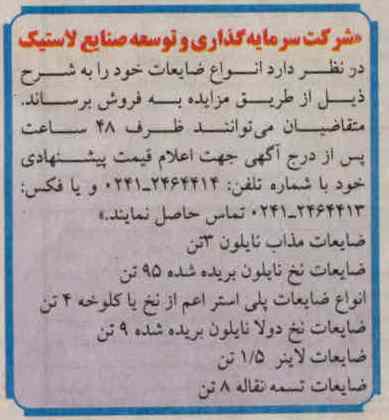 «شرکت سرمایه گذاری و توسعه صنایع لاستیک
در نظر دارد انواع ضایعات خود را به شرح
ذیل از طریق مزایده به فروش برساند.
متقاضیان می‌توانند ظرف ۴۸ ساعت
پس از درج آگهی جهت اعلام قیمت پیشنهادی
خود با شماره تلفن: ۲۴۶۴۴۱۴-۰۲۴۱ و یا فکس:
۲۴۶۴۴۱۳-۰۲۴۱ تماس حاصل نمایند.»
ضایعات مذاب نایلون ۳تن
ضایعات نخ نایلون بریده شده ۹۵ تن
انواع ضایعات پلی استر اعم از نخ یا کلوخه ۴ تن
ضایعات نخ دولا نایلون بریده شده ۹ تن
ضایعات لاینر ۱/۵ تن
ضایعات تسمه نقاله ۸ تن